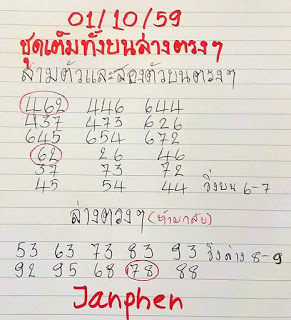 01/10/59
ชุดเต็มทั้งบนล่างตรงๆ
สามตัวและสองตัวบนตรงๆ
462 446 644
437 473 626
645 654 672
62 26 46
37 73 72
45 54 44 วิ่งบน 6-7
ล่างตรงๆ (ห้ามกลับ)
53 63 73 83 93 วิ่งล่าง 8-9
92 95 68 78 88
Janphen